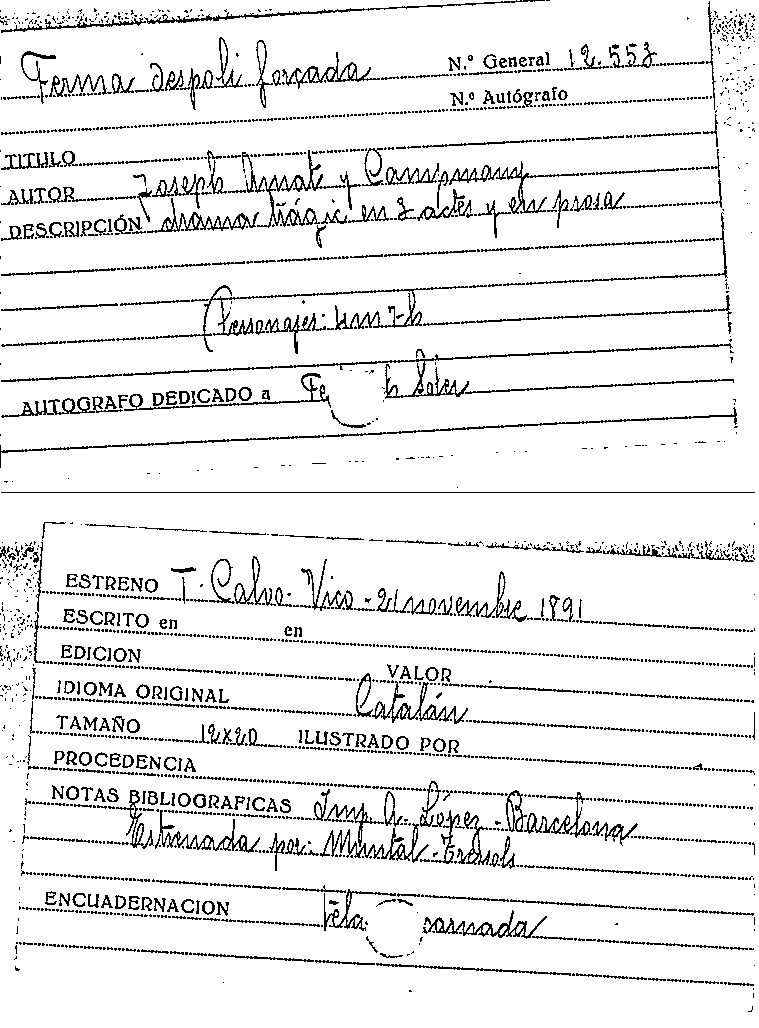 Ferma despoli forçada N.º General 12.553
N.º Autógrafo
TITULO
AUTOR Joseph Amat y Campmany
DESCRIPCIÓN drama trágic en 3 actes y en prosa
(Personajes: 4m 7h
AUTOGRAFO DEDICADO a Fe h Soler
ESTRENO T. Calvo-Vico - 21 novembre 1891
ESCRITO en en
EDICION VALOR
IDIOMA ORIGINAL Catalán
TAMAÑO 12x20 ILUSTRADO POR
PROCEDENCIA
NOTAS BIBLIOGRAFICAS Imp. A. López - Barcelona
Estrenada por: Muntal -
ENCUADERNACION tela carnada